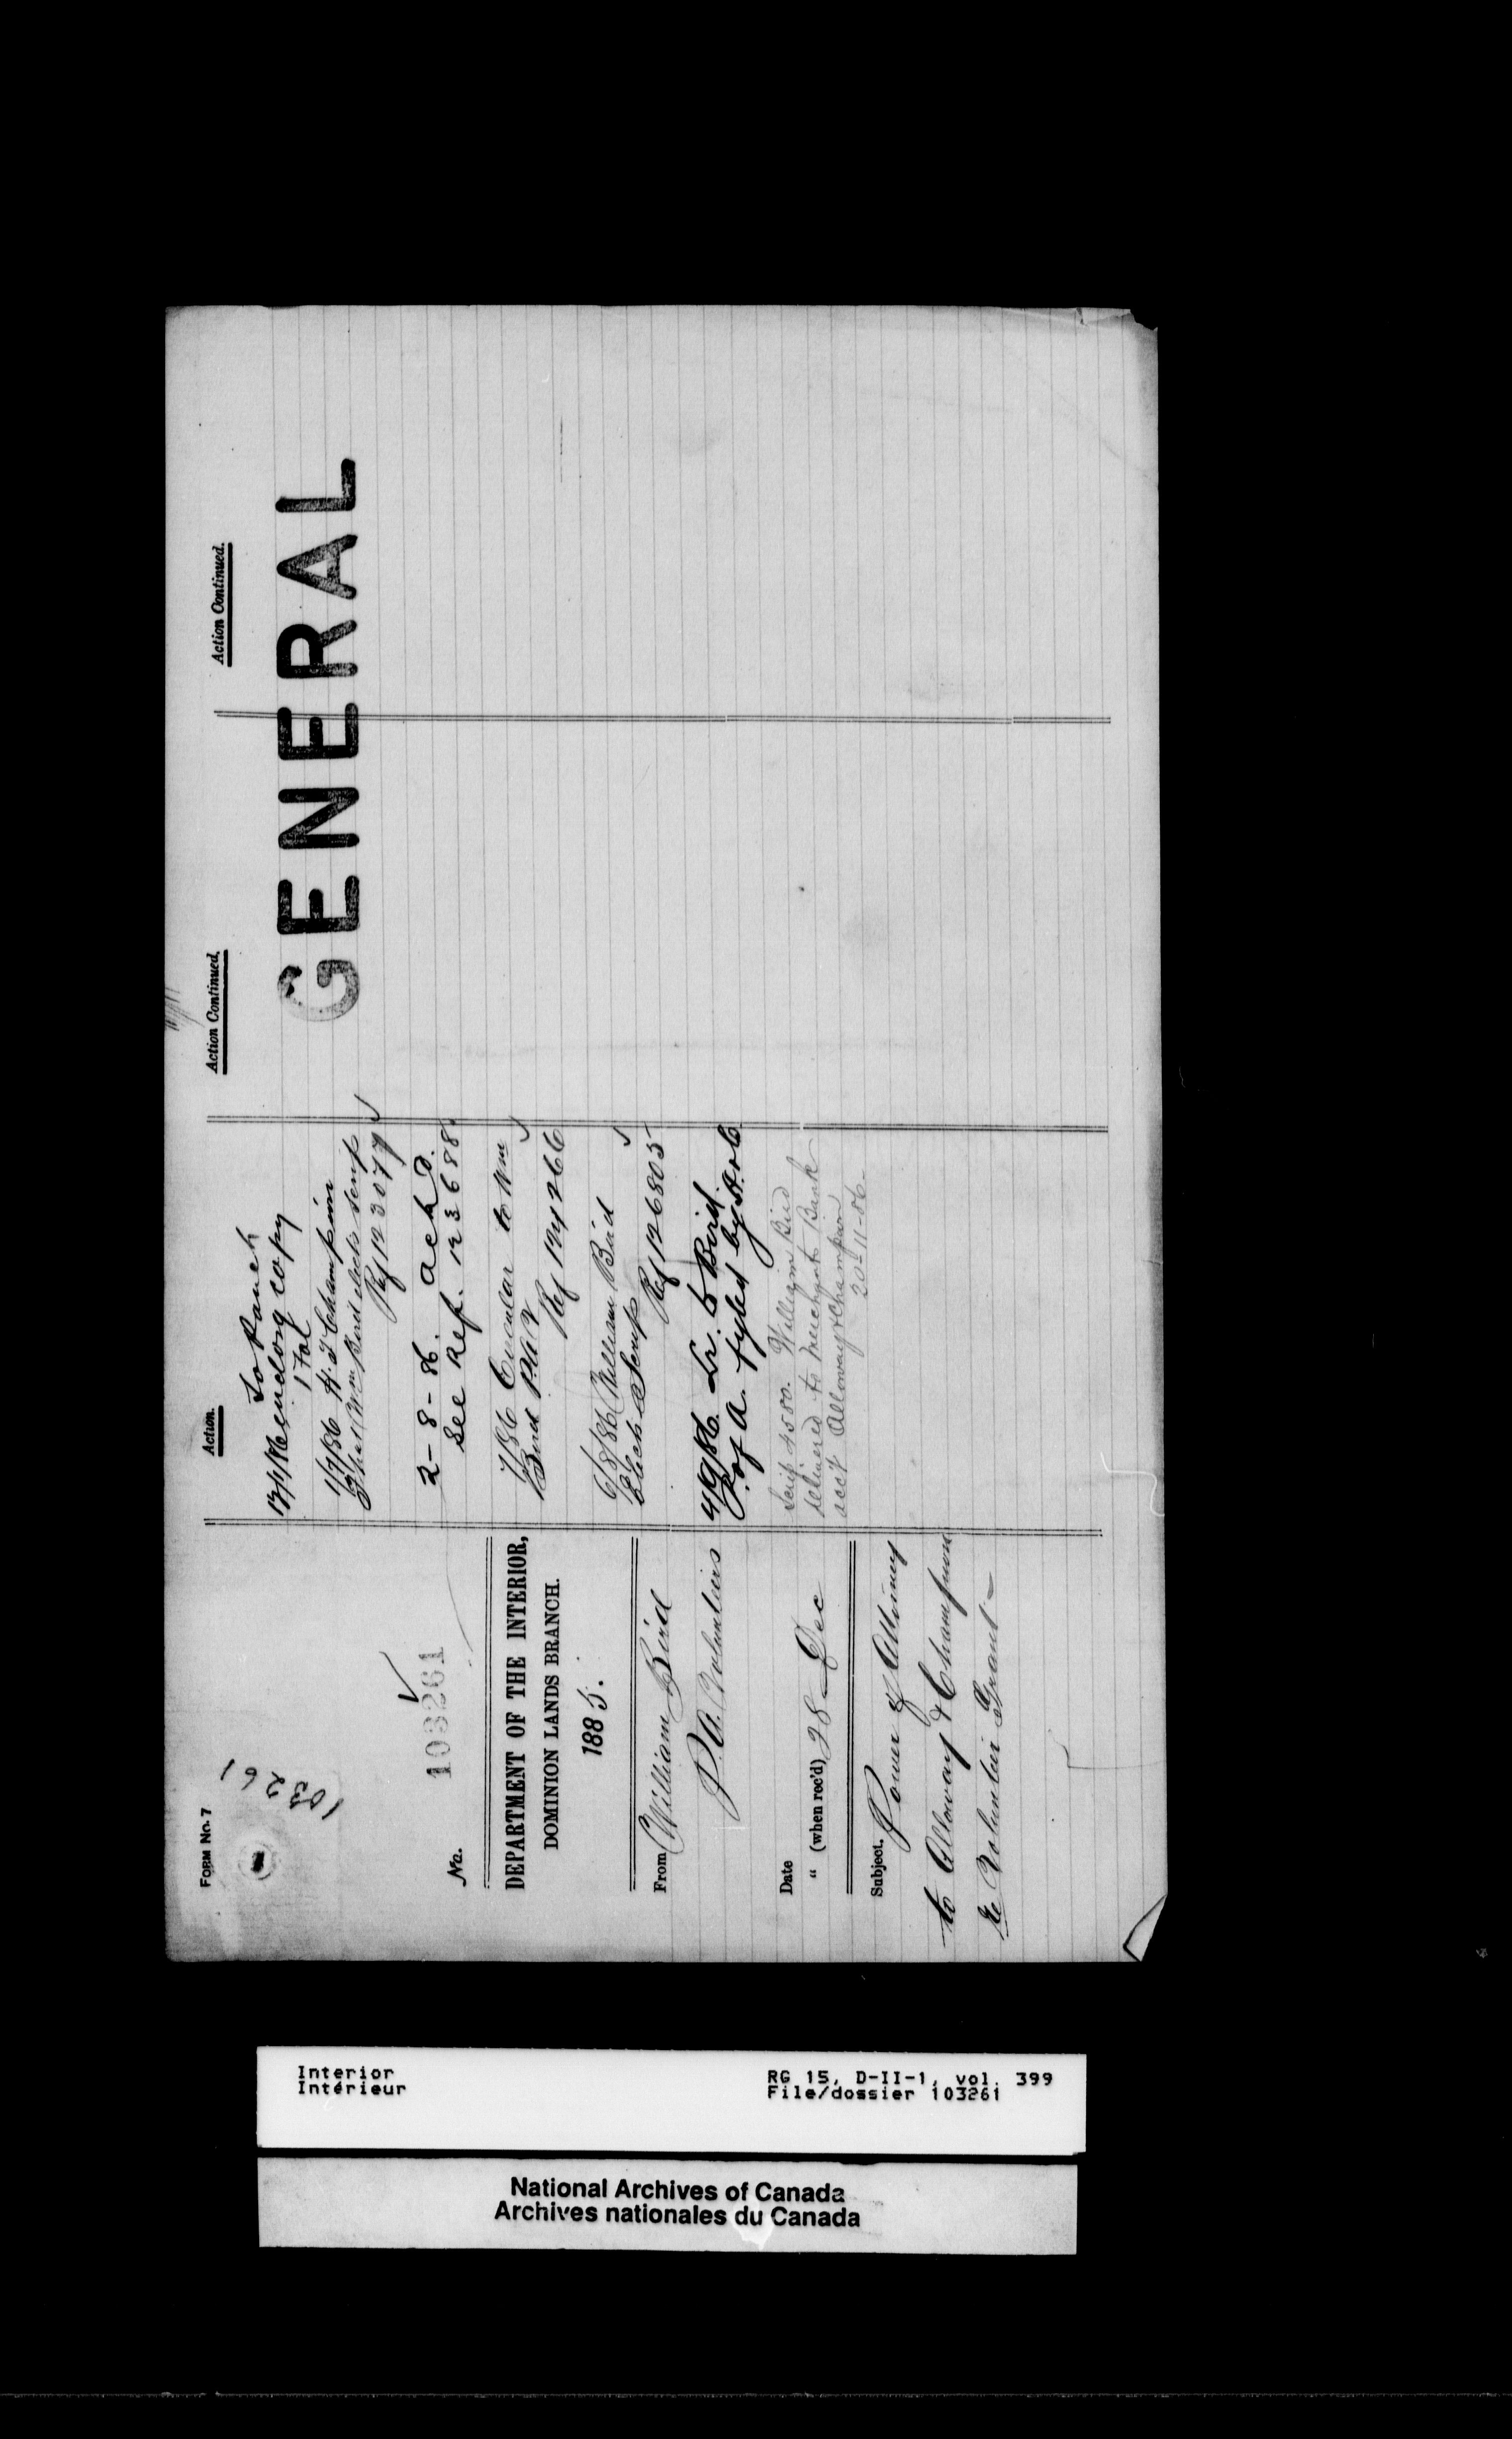 FORM No. 7
103261
No. 103261
DEPARTMENT OF THE INTERIOR,
DOMINION LANDS BRANCH.
1885.
From William Bird
P.A. Volunteers
Date
" (when rec'd) 28 Dec
Subject. Power of Attorney
to Alloway & Champion
re Volunteer Grant
Action.
enclosing copy
H. J. Champion
that Wm Bird elects scrip
Ref 123077
2-8-86. Ackd.
See Ref. 123688
Circular to Wm
Bird P.A.V
6/8/86 William Bird
Elects Scrip
Ref 126805
4/9/86 Lr. to Bird.
P. of A. fyled by A & C
Scrip 4580. William Bird
delivered to Merchants Bank
acct Alloway & Champion
20-11-86
Action Continued.
Action Continued.
GENERAL
Interior
Intérieur
RG 15, D-II-1, vol. 399
File/dossier 103261
National Archives of Canada
Archives nationales du Canada